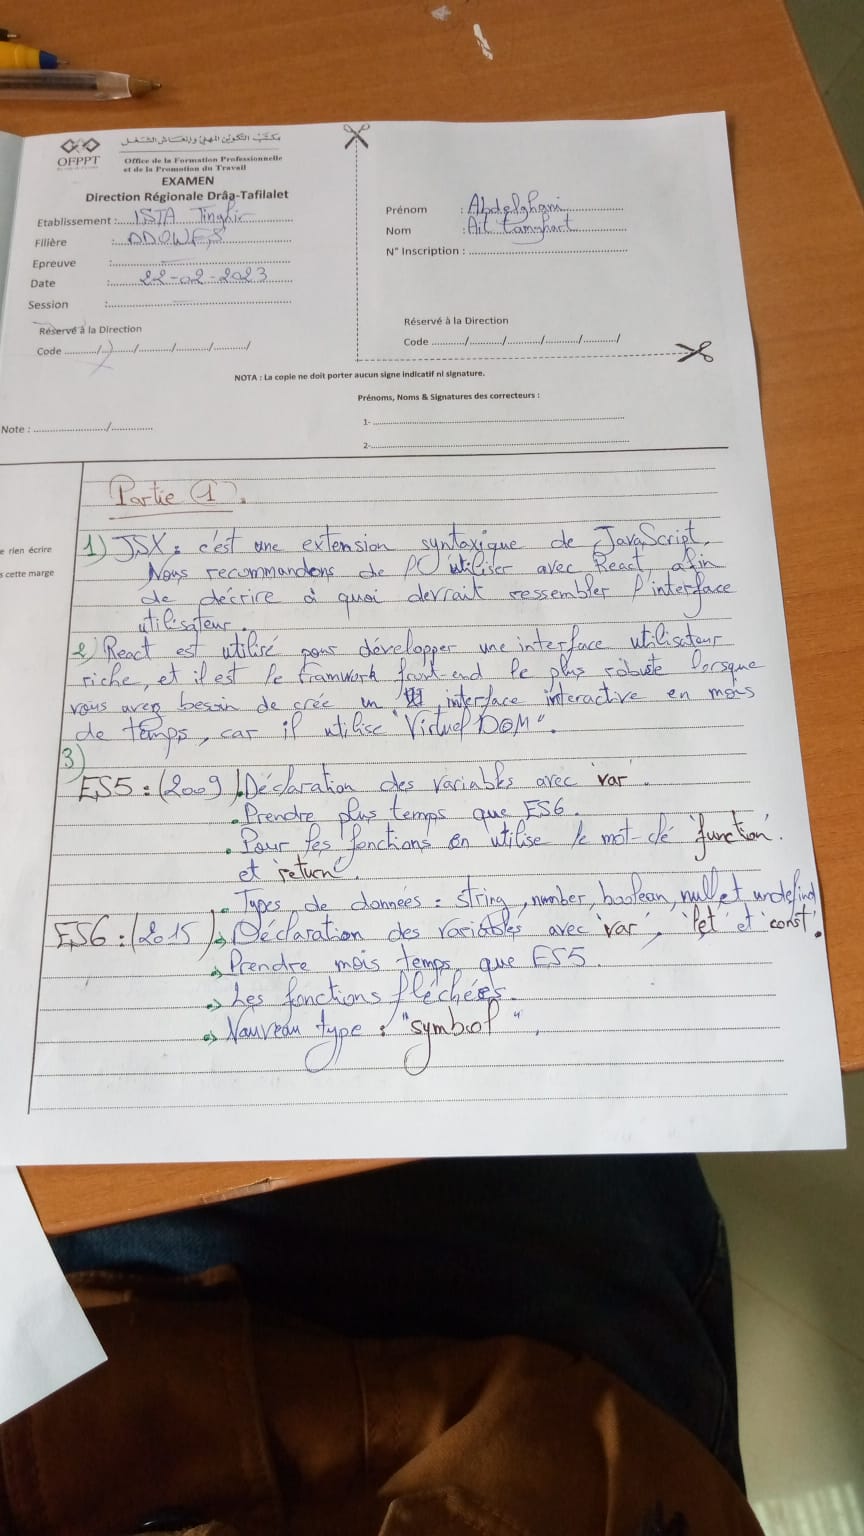 مكتب التكوين المهني وإنعاش الشغل
OFPPT
Office de la Formation Professionnelle
et de la Promotion du Travail
EXAMEN
Direction Régionale Drâa-Tafilalet
Etablissement : ISTA Tinghir
Filière : DDOWFS
Epreuve :
Date : 22-02-2023
Session :
Réservé à la Direction
Code ........../....../........./........./........./
Prénom : Abdelghani
Nom : Ait Tamghart
N° Inscription :
Réservé à la Direction
Code ........../........./........./........./........./
NOTA : La copie ne doit porter aucun signe indicatif ni signature.
Prénoms, Noms & Signatures des correcteurs :
Note : ................../..............
1-
2-
e rien écrire
s cette marge
Partie 1.
1) JSX : c'est une extension syntaxique de JavaScript.
Nous recommandons de l'utiliser avec React, afin
de décrire à quoi devrait ressembler l'interface
utilisateur.
2) React est utilisé pour développer une interface utilisateur
riche, et il est le framwork front-end le plus robuste lorsque
vous avez besoin de crée un interface interactive en mois
de temps, car il utilise "Virtuel DOM".
3)
ES5 : (2009). Déclaration des variables avec 'var'.
. Prendre plus temps que ES6.
. Pour les fonctions on utilise le mot-clé 'function'.
et 'return'.
. Types de données : string, number, boolean, null et undefind
ES6 : (2015) Déclaration des variables avec 'var', 'let' et 'const'.
Prendre mois temps que ES5.
Les fonctions fléchées.
Nauveau type : "symbol".